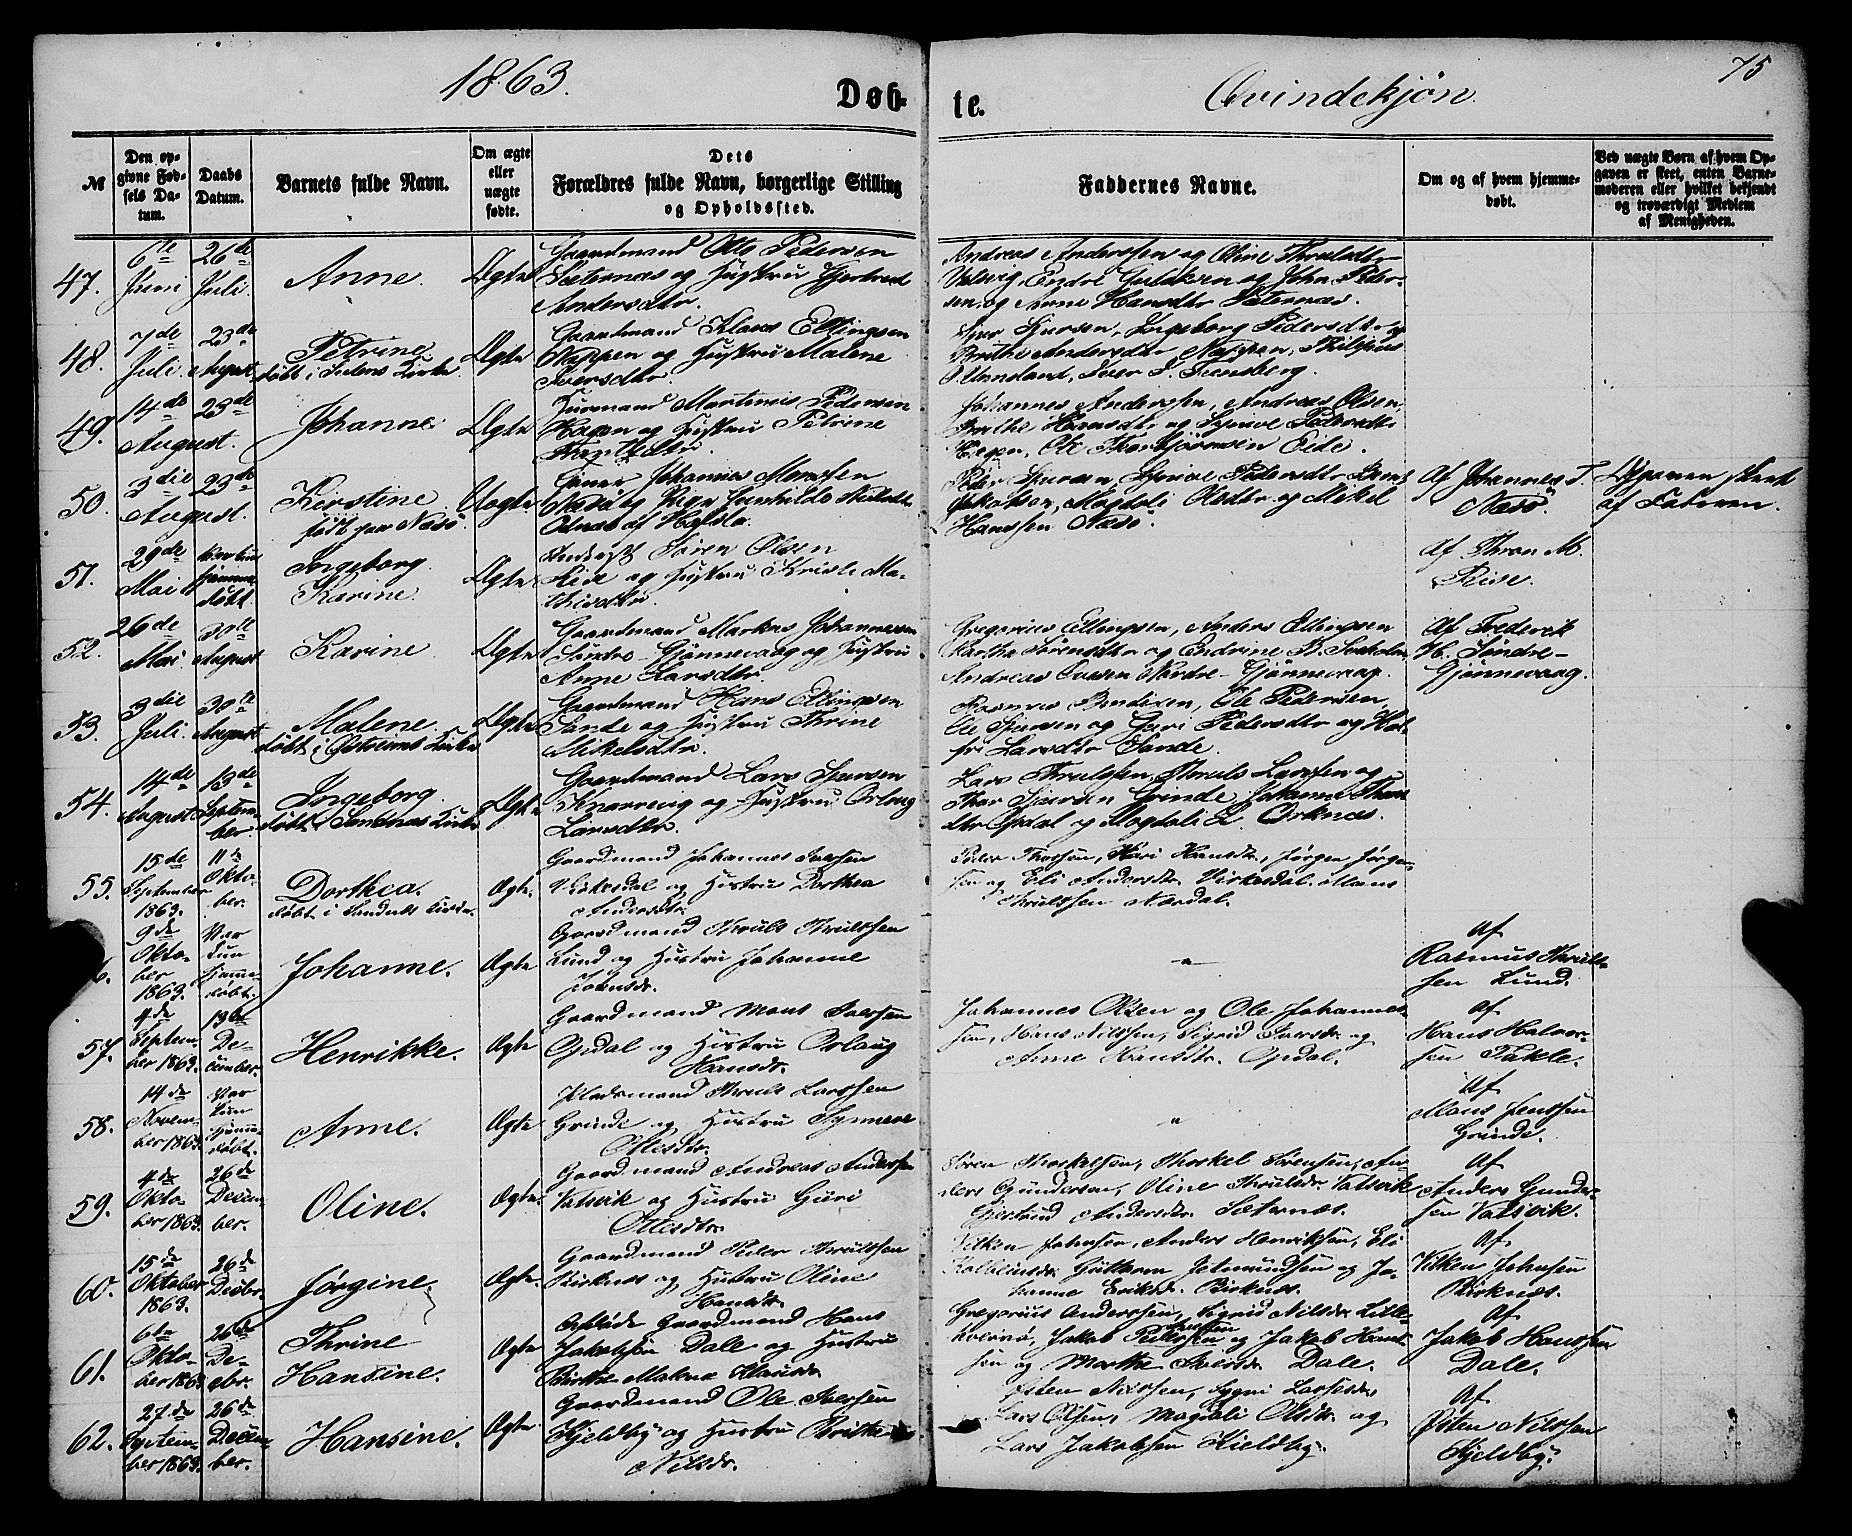 1863.
Døb-
te.
Qvindekjøn.
75
№
Den op-
givne Fød-
sels Da-
tum.
Daabs
Datum.
Barnets fulde Navn.
Om ægte
eller
uægte
fødte.
Dets
Forældres fulde Navn, borgerlige Stilling
og Opholdssted.
Faddernes Navne.
Om og af hvem hjemme-
døbt.
Ved uægte Børn af hvem Op-
gaven er skeet, enten Barne-
moderen eller hvilket bekjendt
og troværdigt Medlem
af Menigheden.
47.
6te
Juni
26de
Juli.
Anne
Ægte
Gaardmand Ole Pedersen
Sæternæs og Hustru Gjertrud
Andersdtr.
Andreas Anderssen og Oline Thrulsdtr
Endre og John Peder-
sen og Anne Hansdtr Sæternæs.
48.
7de
Juli.
23de
August.
Petrine
døbt i Sulens Kirke
Ægte
Gaardmand Klaus Ellingsen
Nappen og Hustru Malene
Iversdtr.
Iver Sjursen, Ingeborg Pedersdtr og
Brithe Andersdtr Nappen,
Iver I.
49.
14de
August.
23de
Johanne
Ægte
Husmand Martinus Pedersen
Hagen og Hustru Petrine
Johannes Anderssen, Andreas Olsen,
Brithe Hansdtr og Synneve Pedersdtr
Ole Thorbjørnsen Eide.
50.
3die
August.
23de
Kirstine
født paa Næsø
Uægte
Johannes Monssen
Næsø og Pige Gunhilde
Peder Sjursen, Synneve Pedersdtr,
Jakobsen, Magdali Olsdtr og Mikel
Hanssen Næsø.
Af Johannes T.
Næsø
Opgaven skeet
af Faderen.
51.
29de
Mai
hjemme-
døbt
Ingeborg
Karine.
Ægte
Søren Olsen
og Hustru Kristi Ma-
thisdtr.
Af Thron M.
52.
26de
Mai
30te
August
Karine
Ægte
Gaardmand Markus Johannessen
Søndre-Gjønnevaag og Hustru
Anne Larsdtr.
Gregorius Ellingsen, Anders Ellingsen
Martha Sørensdtr og Endrine B.
Andreas Nordre-Gjønnevaag.
Af Frederik
H. Søndre-
Gjønnevaag.
53.
3die
Juli.
30te
August
Malene
døbt i Kirke
Ægte
Gaardmand Hans Ellingsen
Sande og Hustru Thrine
Mikelsdtr.
Rasmus Bendixen, Ole Pedersen,
Ole Sjursen og Guri Pedersdtr og
Larsdtr Sande.
54.
14de
August
13de
Septem-
ber
Ingeborg
døbt i Kirke
Ægte
Gaardmand Lars Sjursen
Knarrevig og Hustru Orlaug
Larsdtr.
Lars Thrulssen, Thruls Larssen og
Thor Sjursen Grinde, Johanne
dtr Opdal og Magdali Orknæs.
55.
15de
September
1863.
11te
Okto-
ber.
Dorthea.
døbt i Kirke.
Ægte.
Gaardmand Johannes Iversen
Virkesdal og Hustru Dorthea
Andersdtr.
Peder Thorssen, Kari Hansdtr, Jørgen Jørgen-
sen og Eli Andersdtr Virkesdal, Mons
Thrulssen Nordal.
9de
Okto-
ber
1863.
Var
kun
hjemme-
døbt.
Johanne.
Ægte
Gaardmand Thruls Thrulssen
Lund og Hustru Johanne
Johnsdtr.
"
Af
Rasmus Thruls-
sen Lund.
57.
4de
Septem-
ber 1863.
13de
De-
cember.
Henrikke.
Ægte
Gaardmand Mons Iversen
Opdal og Hustru Orlaug
Hansdtr.
Johannes Olsen og Ole Johannes-
sen, Hans Nilssen, Sigrid Iversdtr og
Anne Hansdtr Opdal.
Af
Hans Halvor-
sen Takle.
58.
14de
Novem-
ber 1863.
Var
kun
hjemme-
døbt.
Anne.
Ægte
Pladsmand Thruls Larssen
Grinde og Hustru Synneve
Ottesdtr.
"
Af
Mons Jenssen
Grinde.
59.
4de
Okto-
ber 1863.
26de
Decem-
ber.
Oline.
Ægte.
Gaardmand Andreas Andersen
Vatsvik og Hustru Guri
Ottesdtr.
Søren Thorkelsen, Thorkel Sørensen, An-
ders Gundersen, Oline Thrulsdtr Vatsvik
Gjertrud Andersdtr Sæternæs.
Af
Anders Gunder-
sen Vatsvik.
60.
15de
Oktober
1863.
26de
Decbr.
Jørgine.
Ægte.
Gaardmand Peder Thrulssen
Birknæs og Hustru Oline
Hansdtr.
Vilken Johnsen, Anders Henriksen, Eli
Guthorm Jetmundsen og Jo-
hanne Eriksdtr Birknæs.
Af
Vilken Johnsen
Birknæs.
61.
6te
Okto-
ber 1863
26de
De-
cbr.
Thrine
Hansine.
Ægte
Gaardmand Hans
Jakobsen Dale og Hustru
Birthe Malene Klausdtr.
Gregorius Anderssen, Sigrid Nilsdtr Lille-
Jakob Pederssen og Jakob Hans-
sen og Marthe Iversdtr Dale.
Af
Jakob Hanssen
Dale.
62.
27de
Septem-
ber 1863.
26de
Decem-
ber.
Hansine.
Ægte
Gaardmand Ole Iversen
Kjeldby og Hustru Brithe
Nilsdtr.
Østen Nilssen, Sygni Lassesdtr,
Lars Olsen, Magdali Olsdtr og
Lars Jakobsen Kjeldby.
Af
Østen Nilssen
Kjeldby.